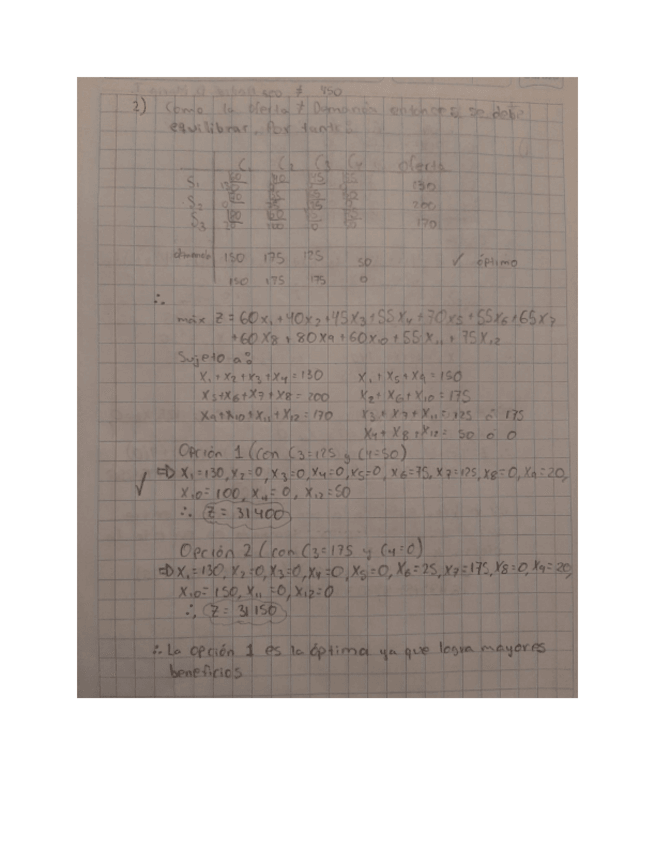 500 ≠ 450
2) Como la oferta ≠ Demanda entonces se debe
equilibrar. Por tanto:
C1 C2 C3 C4 oferta
S1 130
S2 200
S3 170
demanda 150 175 125 50 ✓ óptimo
150 175 175 0
∴
máx Z = 60x1+40x2+45x3+55x4+70x5+55x6+65x7
+60x8+80x9+60x10+55x11+75x12
Sujeto a:
x1+x2+x3+x4=130 x1+x5+x9=150
x5+x6+x7+x8=200 x2+x6+x10=175
x9+x10+x11+x12=170 x3+x7+x11=125 ó 175
x4+x8+x12= 50 ó 0
Opción 1 (con C3=125 y C4=50)
✓ ⇒ x1=130, x2=0, x3=0, x4=0, x5=0, x6=75, x7=125, x8=0, x9=20,
x10=100, x11=0, x12=50
∴ Z=31400
Opción 2 (con C3=175 y C4=0)
⇒ x1=130, x2=0, x3=0, x4=0, x5=0, x6=25, x7=175, x8=0, x9=20,
x10=150, x11=0, x12=0
∴ Z=31150
∴ La opción 1 es la óptima ya que logra mayores
beneficios